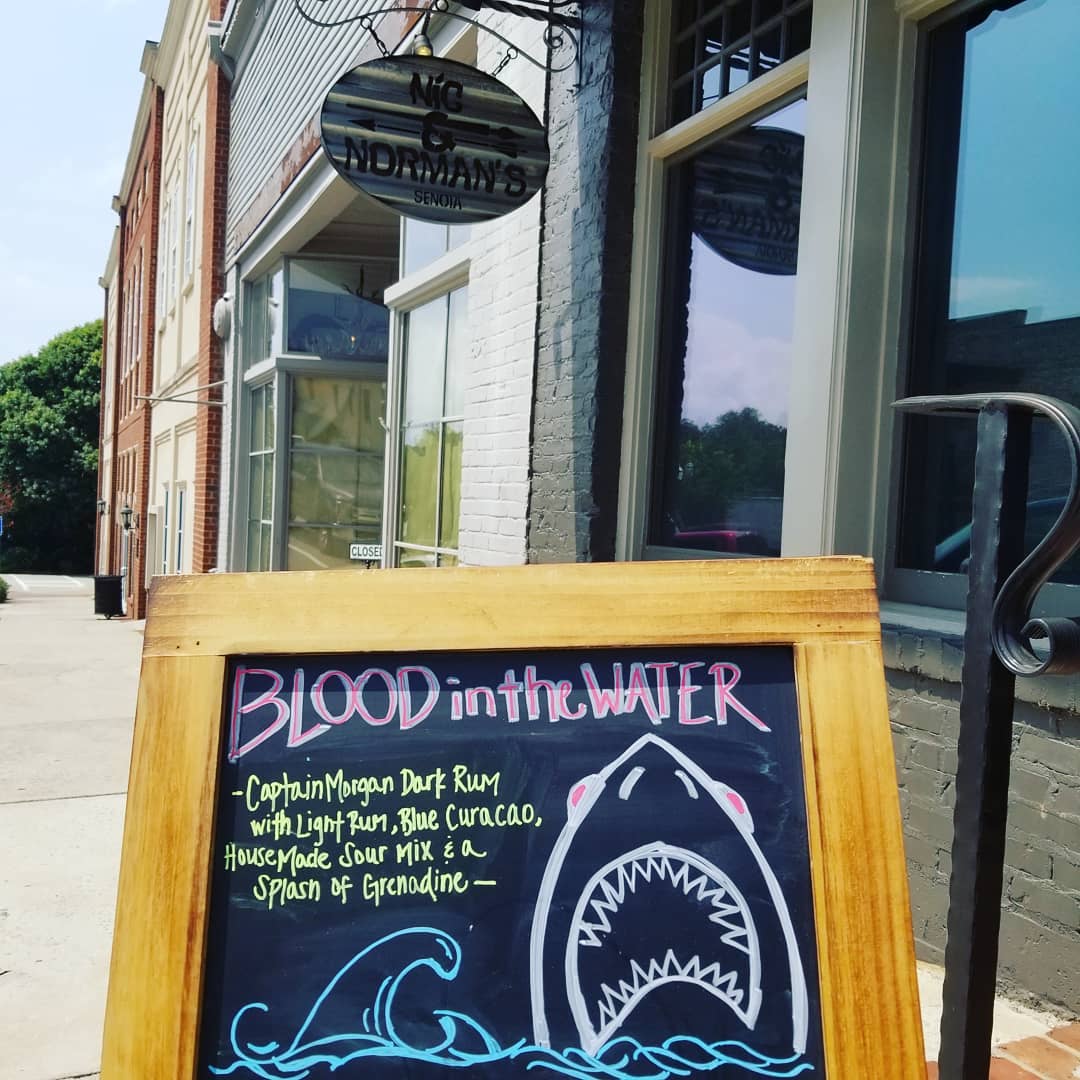 NIC
&
NORMAN'S
SENOIA
CLOSED
BLOOD in the WATER
- Captain Morgan Dark Rum
with Light Rum, Blue Curacao,
House Made Sour Mix & a
Splash of Grenadine —